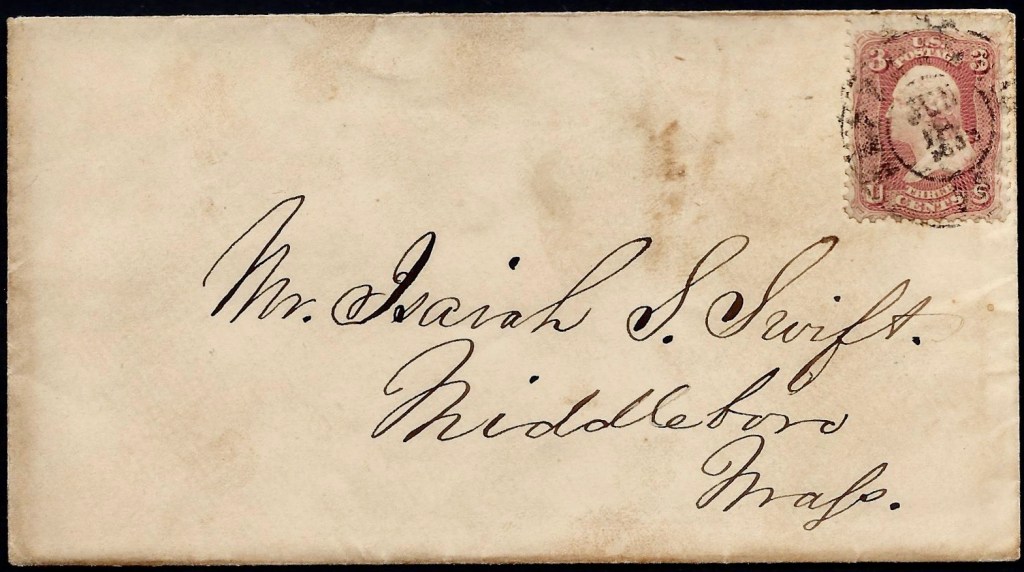 3 U.S. 3
POSTAGE
JUN
U S
THREE
CENTS
Mr. Isaiah S. Swift.
Middleboro
Mass.